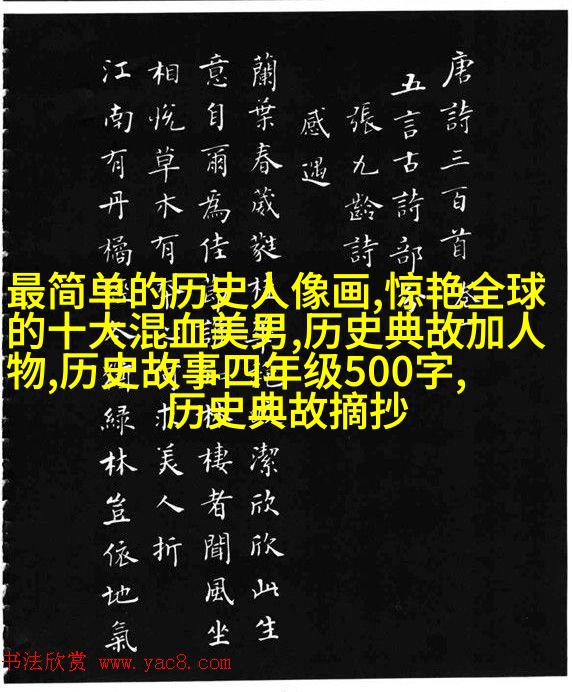 唐詩三百首
五言古詩部
張九齡詩
感遇
蘭葉春葳蕤桂 潔欣欣此生
意自爾為佳 棲者聞風坐
相悅草木有 美人折
江南有丹橘 綠林豈依地氣
最简单的历史人像画,惊艳全球
的十大混血美男,历史典故加人
物,历史故事四年级500字,
历史典故摘抄
书法欣赏 www.yac8.com